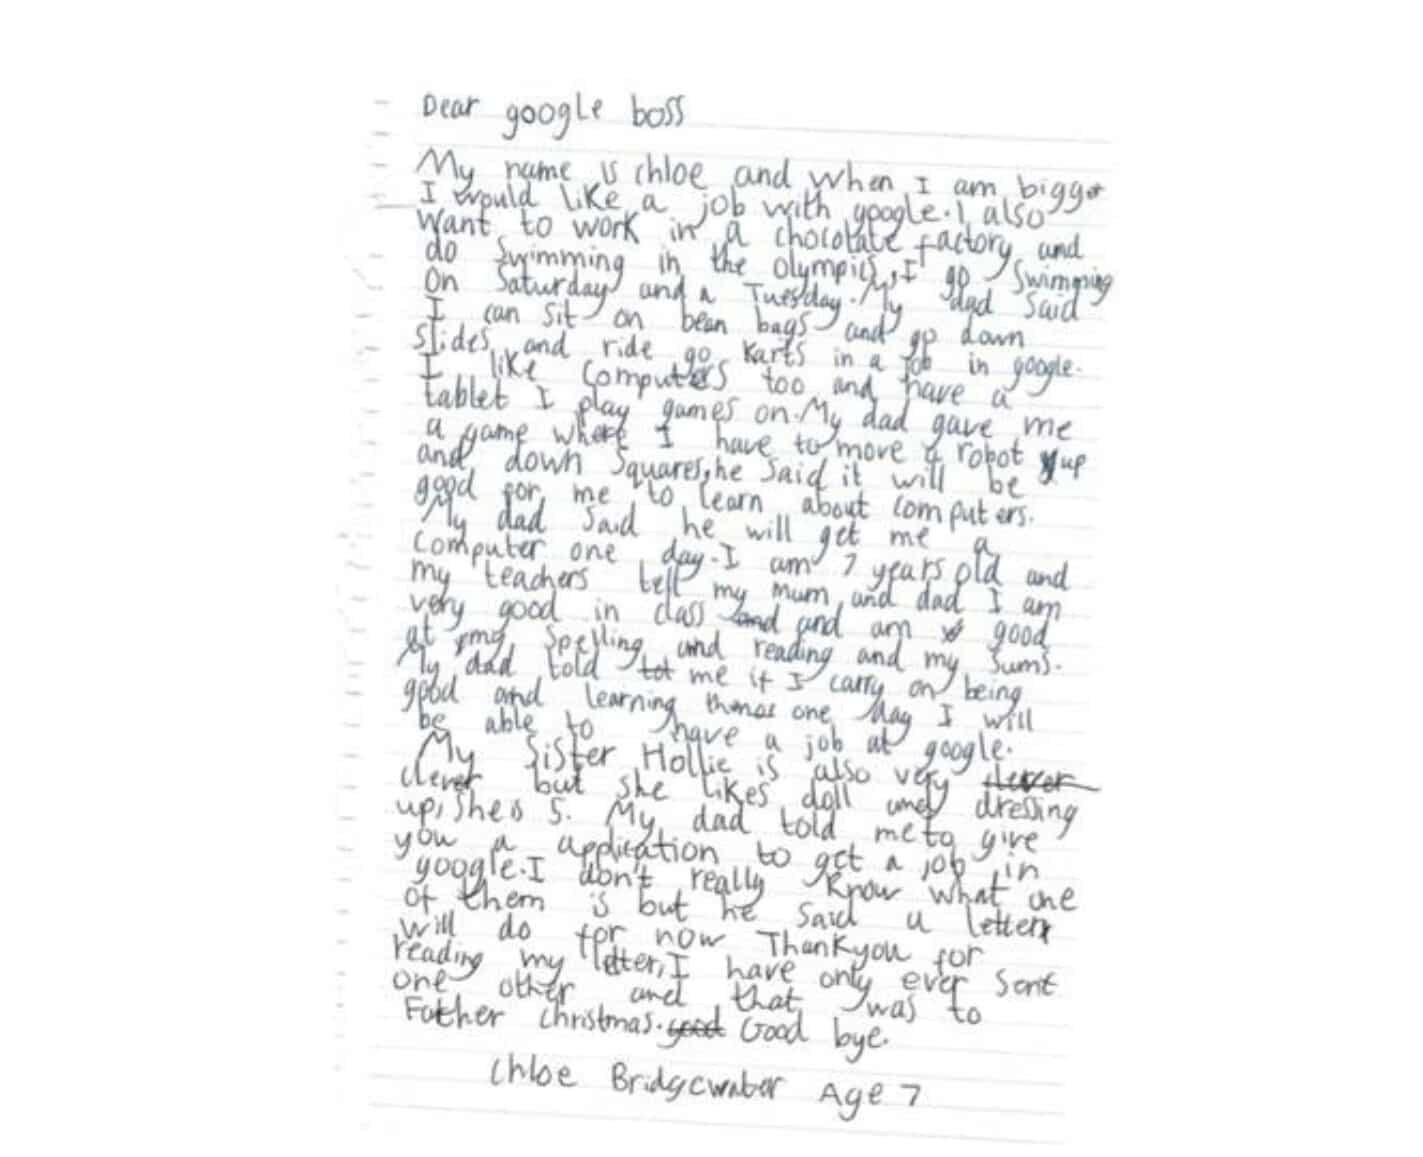 Dear google boss
My name is chloe and when I am bigger
I would like a job with google. I also
want to work in a chocolate factory and
do swimming in the olympics, I go Swimming
on Saturday and a Tuesday. My dad said
I can sit on bean bags and go down
slides and ride go karts in a job in google.
I like computers too and have a
tablet I play games on. My dad gave me
a game where I have to move a robot up
and down squares, he said it will be
good for me to learn about computers.
My dad said he will get me a
computer one day. I am 7 years old and
my teachers tell my mum and dad I am
very good in class and and am good
at my spelling and reading and my sums.
My dad told tot me if I carry on being
good and learning one day I will
be able to have a job at google.
My sister Hollie is also very clever
clever but she likes doll and dressing
up, she is 5. My dad told me to give
you a application to get a job in
google. I don't really know what one
of them is but he said a letter
will do for now Thankyou for
reading my letter, I have only ever sent
one other and that was to
Father christmas. good Good bye.
Chloe Bridgewater Age 7